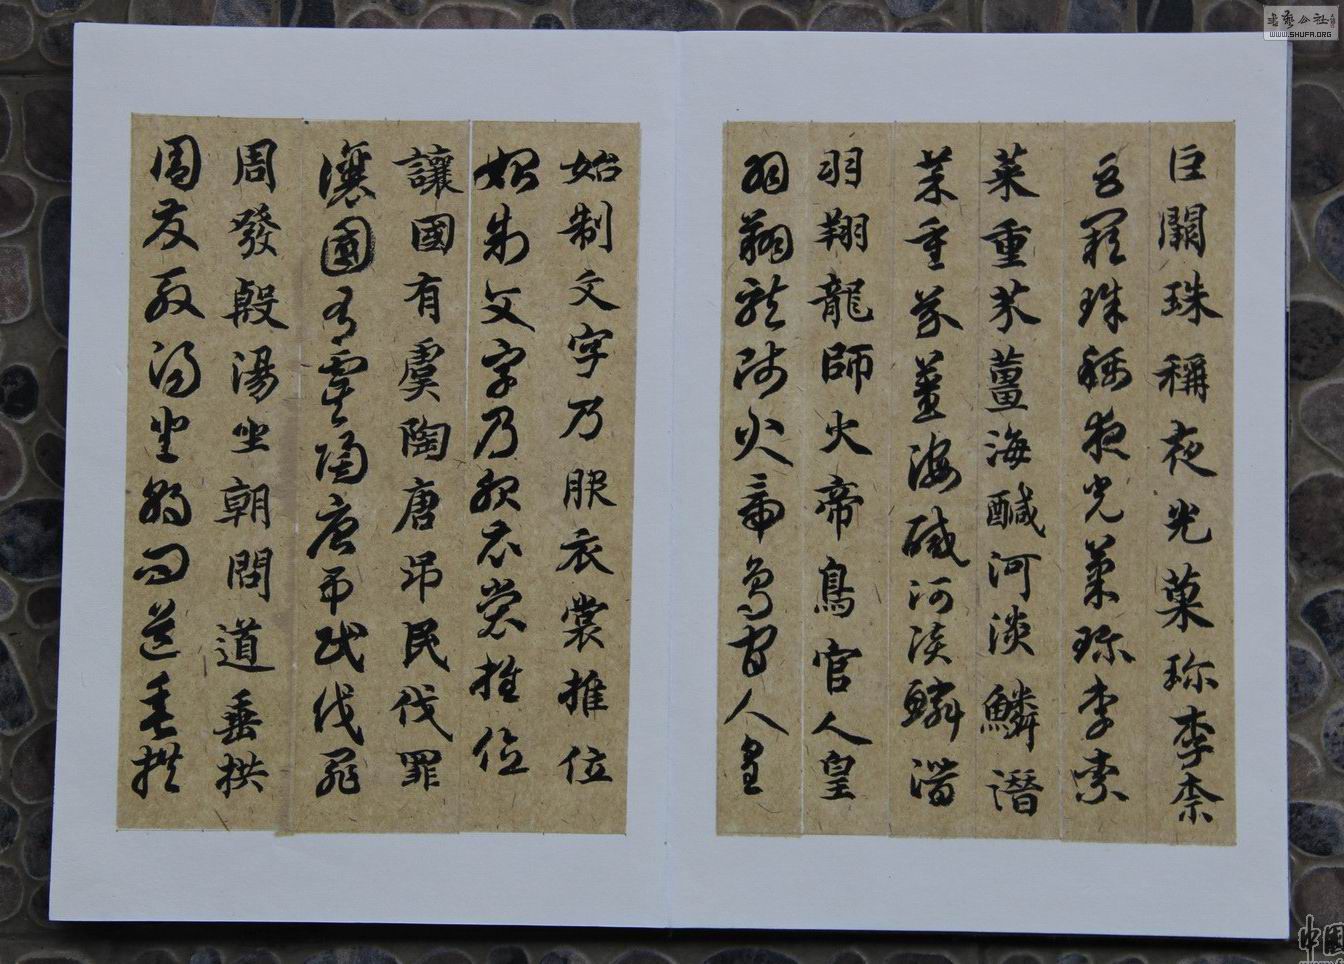 巨闕珠稱夜光菓珎李柰
巨闕珠稱夜光菓珎李柰
菜重芥薑海醎河淡鱗潛
菜重芥薑海醎河淡鱗潛
羽翔龍師火帝鳥官人皇
羽翔龍師火帝鳥官人皇
始制文字乃服衣裳推位
始制文字乃服衣裳推位
讓國有虞陶唐吊民伐罪
讓國有虞陶唐吊民伐罪
周發殷湯坐朝問道垂拱
周發殷湯坐朝問道垂拱
书艺公社
WWW.SHUFA.ORG
中國